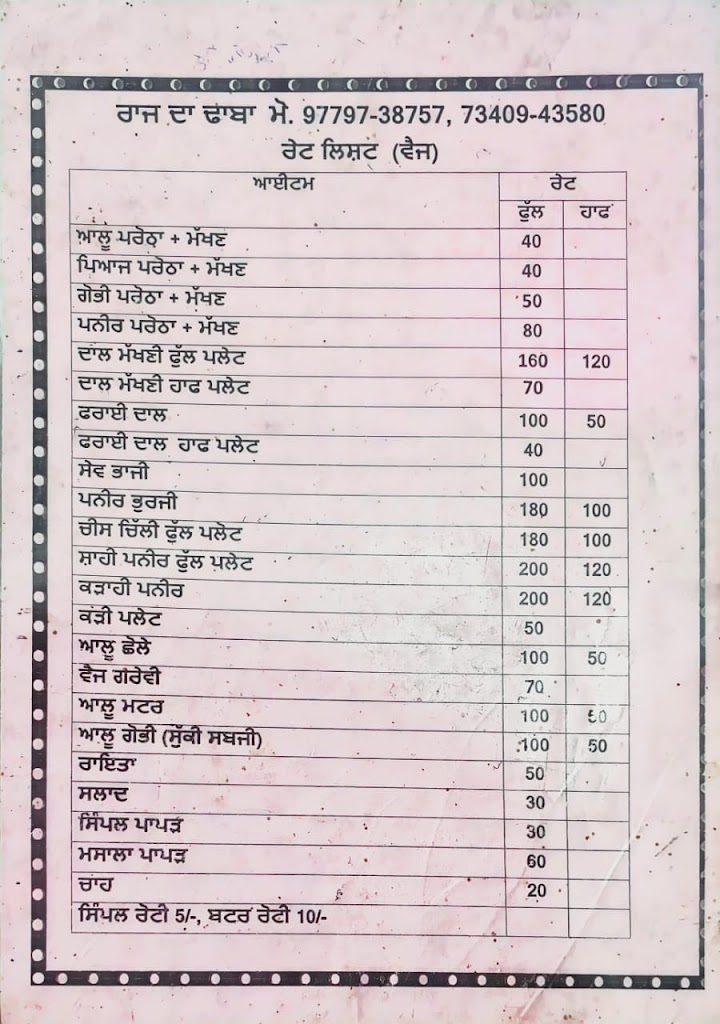 ਰਾਜ ਦਾ ਢਾਬਾ ਮੋ. 97797-38757, 73409-43580
ਰੇਟ ਲਿਸ਼ਟ (ਵੈਜ)
ਆਈਟਮ ਰੇਟ
ਫੁੱਲ ਹਾਫ
ਆਲੂ ਪਰੌਠਾ + ਮੱਖਣ 40
ਪਿਆਜ ਪਰੌਠਾ + ਮੱਖਣ 40
ਗੋਭੀ ਪਰੌਠਾ + ਮੱਖਣ 50
ਪਨੀਰ ਪਰੌਠਾ + ਮੱਖਣ 80
ਦਾਲ ਮੱਖਣੀ ਫੁੱਲ ਪਲੇਟ 160 120
ਦਾਲ ਮੱਖਣੀ ਹਾਫ ਪਲੇਟ 70
ਫਰਾਈ ਦਾਲ 100 50
ਫਰਾਈ ਦਾਲ ਹਾਫ ਪਲੇਟ 40
ਸੇਵ ਭਾਜੀ 100
ਪਨੀਰ ਭੁਰਜੀ 180 100
ਚੀਸ ਚਿੱਲੀ ਫੁੱਲ ਪਲੇਟ 180 100
ਸ਼ਾਹੀ ਪਨੀਰ ਫੁੱਲ ਪਲੇਟ 200 120
ਕੜਾਹੀ ਪਨੀਰ 200 120
ਕੜੀ ਪਲੇਟ 50
ਆਲੂ ਛੋਲੇ 100 50
ਵੈਜ ਗਰੇਵੀ 70
ਆਲੂ ਮਟਰ 100 50
ਆਲੂ ਗੋਭੀ (ਸੁੱਕੀ ਸਬਜੀ) 100 50
ਰਾਇਤਾ 50
ਸਲਾਦ 30
ਸਿੰਪਲ ਪਾਪੜ 30
ਮਸਾਲਾ ਪਾਪੜ 60
ਚਾਹ 20
ਸਿੰਪਲ ਰੋਟੀ 5/-, ਬਟਰ ਰੋਟੀ 10/-